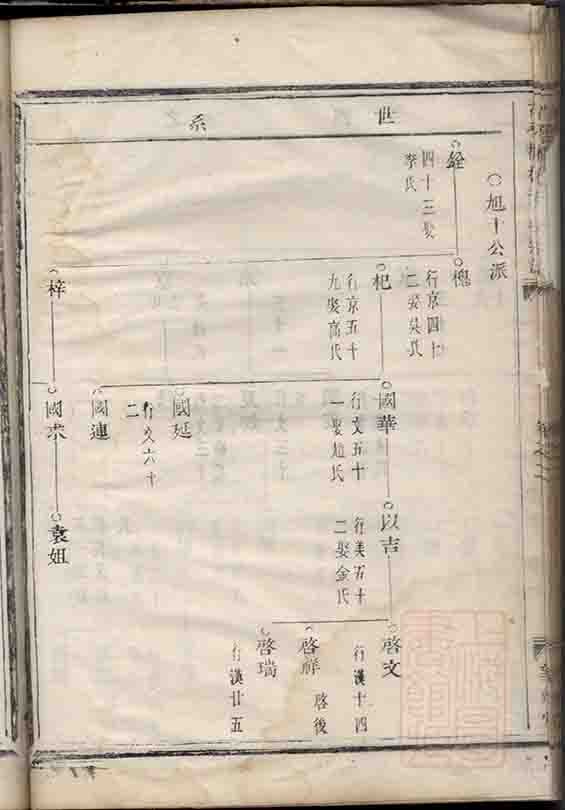 世系
旭十公派
銓
四十三娶
李氏
槐
行京四十
二娶吳氏
杞
行京五十
九娶高氏
梓
國華
行文五十
一娶趙氏
國延
行文六十
二
國連
國求
以吉
行美五十
二娶金氏
袁姐
啓文
行漢十四
啓祥
啓後
啓瑞
行漢廿五